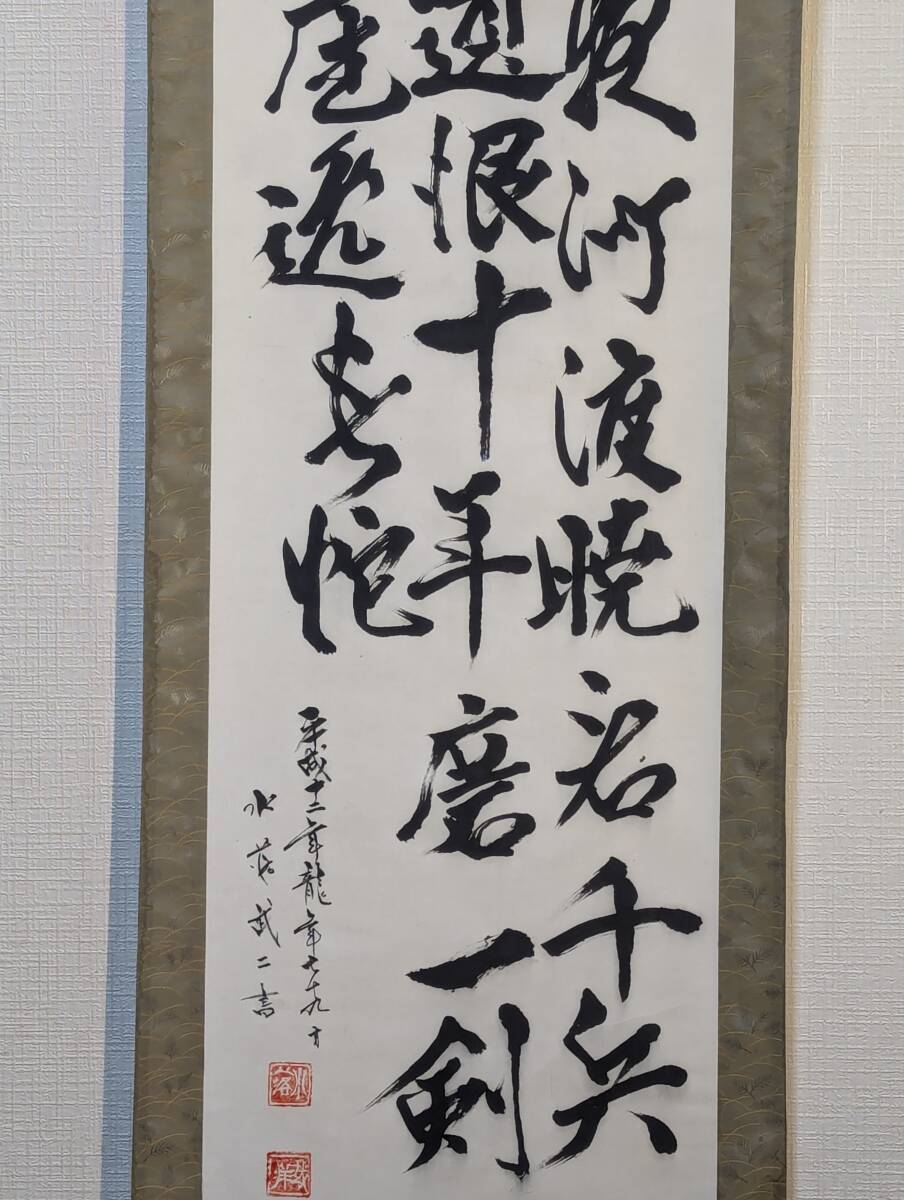 夜河渡暁看千兵
遺恨十年磨一剣
底逸長蛇
平成十二年龍年七十九才
水落武二書
水落